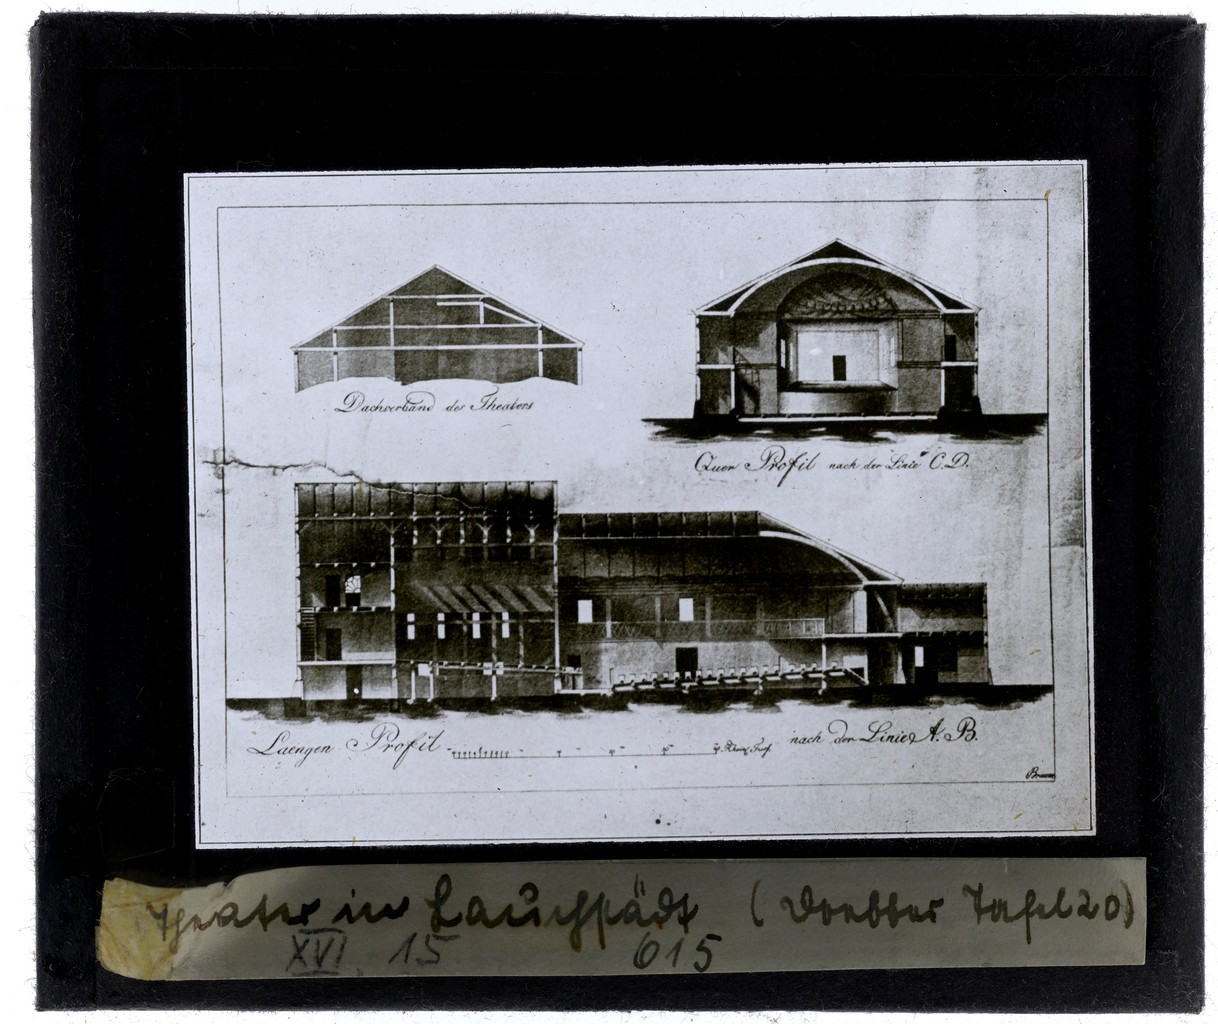 Dachverband des Theaters
Quer Profil nach der Linie C.D.
Laengen Profil
nach der Linie A. B.
Theater in Lauchstädt (Doebber Tafel 20)
XVI 15 615